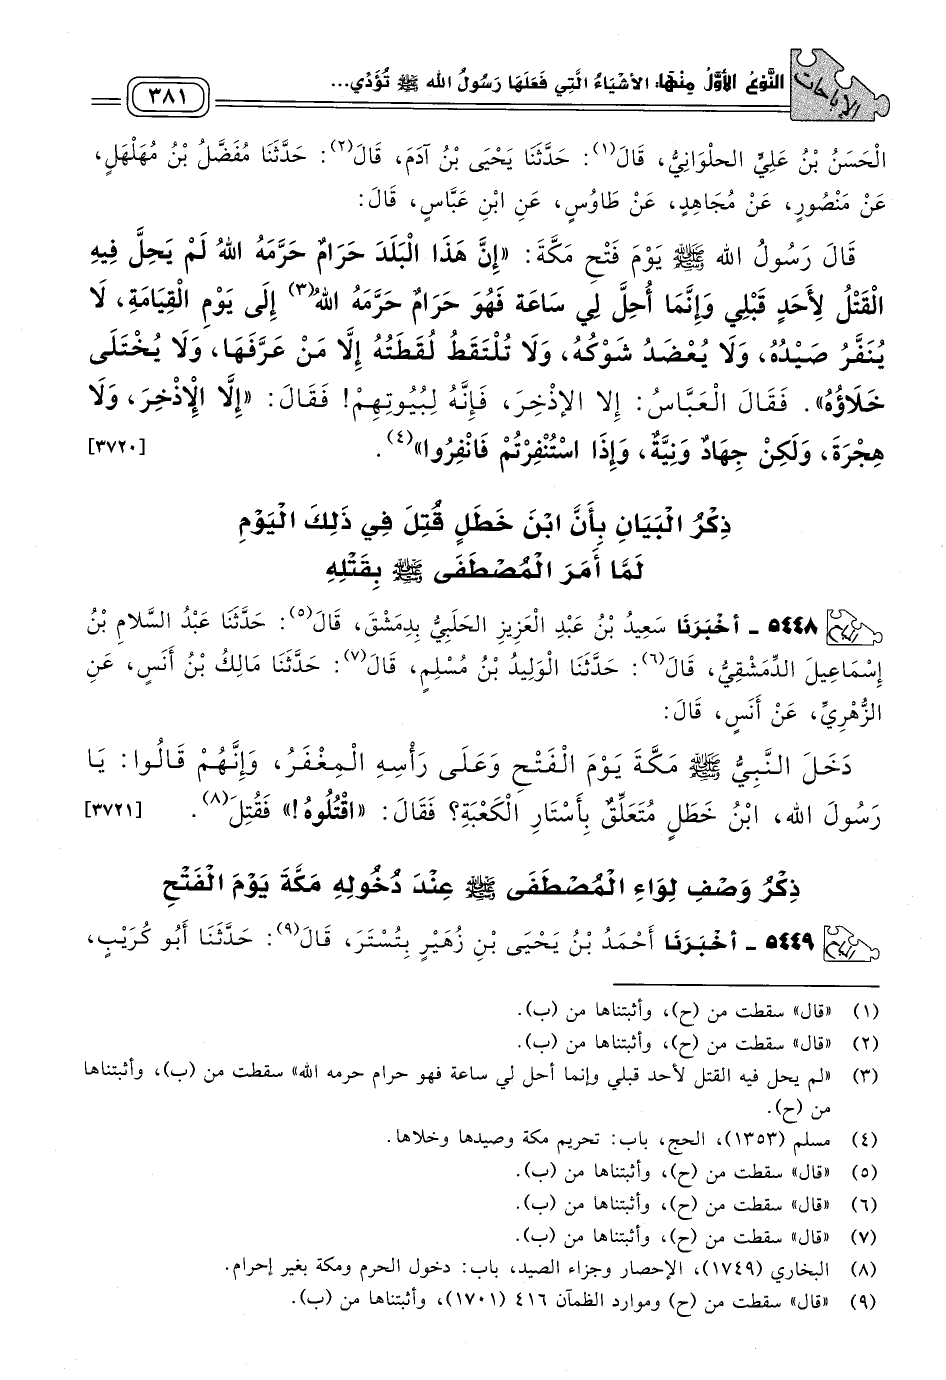 الإباحات
النَّوْعُ الأَوَّلُ مِنْهَا: الأَشْيَاءُ الَّتِي فَعَلَهَا رَسُولُ الله ﷺ تُؤَدِّي...
٣٨١
الْحَسَنُ بْنُ عَلِيٍّ الحلْوَانِيُّ، قَالَ(١): حَدَّثَنَا يَحْيَى بْنُ آدَمَ، قَالَ(٢): حَدَّثَنَا مُفَضَّلُ بْنُ مُهَلْهَلٍ،
عَنْ مَنْصُورٍ، عَنْ مُجَاهِدٍ، عَنْ طَاوُسٍ، عَنِ ابْنِ عَبَّاسٍ، قَالَ:
قَالَ رَسُولُ الله ﷺ يَوْمَ فَتْحِ مَكَّةَ: «إِنَّ هَذَا الْبَلَدَ حَرَامٌ حَرَّمَهُ اللهُ لَمْ يَحِلَّ فِيهِ
الْقَتْلُ لِأَحَدٍ قَبْلِي وَإِنَّمَا أُحِلَّ لِي سَاعَة فَهُوَ حَرَامٌ حَرَّمَهُ اللهُ(٣) إِلَى يَوْمِ الْقِيَامَةِ، لَا
يُنَفَّرُ صَيْدُهُ، وَلَا يُعْضَدُ شَوْكُهُ، وَلَا تُلْتَقَطُ لُقَطَتُهُ إِلَّا مَنْ عَرَّفَهَا، وَلَا يُخْتَلَى
خَلَاؤُهُ». فَقَالَ الْعَبَّاسُ: إلا الإذْخِرَ، فَإِنَّهُ لِبُيُوتِهِمْ! فَقَالَ: «إِلَّا الْإِذْخِرَ، وَلَا
هِجْرَةَ، وَلَكِنْ جِهَادٌ وَنِيَّةٌ، وَإِذَا اسْتُنْفِرْتُمْ فَانْفِرُوا»(٤). [٣٧٢٠]
ذِكْرُ الْبَيَانِ بِأَنَّ ابْنَ خَطَلٍ قُتِلَ فِي ذَلِكَ الْيَوْمِ
لَمَّا أَمَرَ الْمُصْطَفَى ﷺ بِقَتْلِهِ
٥٤٤٨ - أخْبَرَنَا سَعِيدُ بْنُ عَبْدِ الْعَزِيزِ الحَلَبِيُّ بِدِمَشْقَ، قَالَ(٥): حَدَّثَنَا عَبْدُ السَّلامِ بْنُ
إِسْمَاعِيلَ الدِّمَشْقِيُّ، قَالَ(٦): حَدَّثَنَا الْوَلِيدُ بْنُ مُسْلِمٍ، قَالَ(٧): حَدَّثَنَا مَالِكُ بْنُ أَنَسٍ، عَنِ
الزُّهْرِيِّ، عَنْ أَنَسٍ، قَالَ:
دَخَلَ النَّبِيُّ ﷺ مَكَّةَ يَوْمَ الْفَتْحِ وَعَلَى رَأْسِهِ الْمِغْفَرُ، وَإِنَّهُمْ قَالُوا: يَا
رَسُولَ الله، ابْنُ خَطَلٍ مُتَعَلِّقٌ بِأَسْتَارِ الْكَعْبَةِ؟ فَقَالَ: «اقْتُلُوهُ!» فَقُتِلَ(٨). [٣٧٢١]
ذِكْرُ وَصْفِ لِوَاءِ الْمُصْطَفَى ﷺ عِنْدَ دُخُولِهِ مَكَّةَ يَوْمَ الْفَتْحِ
٥٤٤٩ - أخْبَرَنَا أَحْمَدُ بْنُ يَحْيَى بْنِ زُهَيْرٍ بِتُسْتَرَ، قَالَ(٩): حَدَّثَنَا أَبُو كُرَيْبٍ،
(١) «قال» سقطت من (ح)، وأثبتناها من (ب).
(٢) «قال» سقطت من (ح)، وأثبتناها من (ب).
(٣) «لم يحل فيه القتل لأحد قبلي وإنما أحل لي ساعة فهو حرام حرمه الله» سقطت من (ب)، وأثبتناها
من (ح).
(٤) مسلم (١٣٥٣)، الحج، باب: تحريم مكة وصيدها وخلاها.
(٥) «قال» سقطت من (ح)، وأثبتناها من (ب).
(٦) «قال» سقطت من (ح)، وأثبتناها من (ب).
(٧) «قال» سقطت من (ح)، وأثبتناها من (ب).
(٨) البخاري (١٧٤٩)، الإحصار وجزاء الصيد، باب: دخول الحرم ومكة بغير إحرام.
(٩) «قال» سقطت من (ح) وموارد الظمآن ٤١٦ (١٧٠١)، وأثبتناها من (ب).